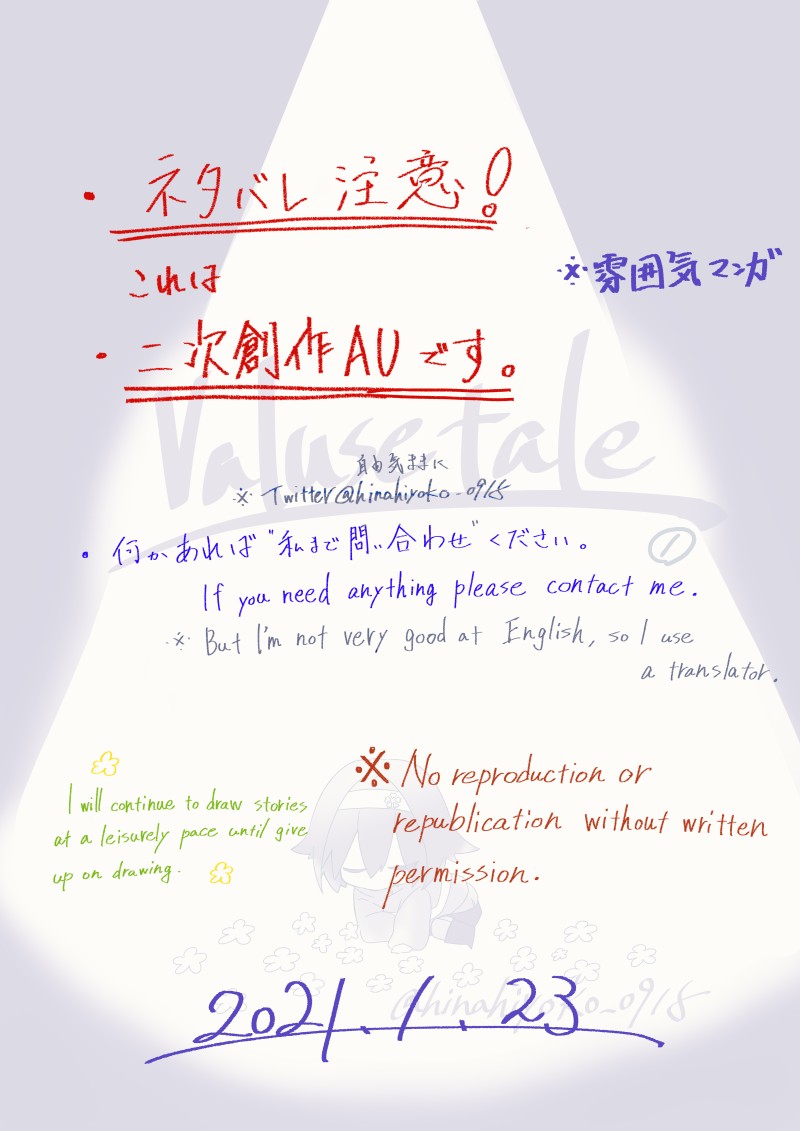 ・ネタバレ注意!
これは
※雰囲気マンガ
・二次創作AUです。
Valusetale
自由気ままに
※Twitter@hinahiyoko_0915
・何かあれば"私まで問い合わせ"ください。
①
If you need anything please contact me.
※But I'm not very good at English, so I use
a translator.
I will continue to draw stories
at a leisurely pace until give
up on drawing.
※No reproduction or
republication without written
permission.
@hinahiyoko_0915
2021.1.23